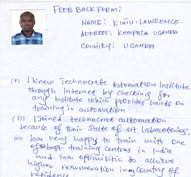 FEED BACK FORM:
NAME: KIMU LAWRENCE
ADDRESS: KAMPALA UGANDA
COUNTRY: UGANDA
(i) I knew Technocrate Automation Institute
through Internet by checking for
any Institute which provides hands on
training in automation
(ii) I Joined technocrat automation
because of their state of art Laboratories.
I am very happy to train with one
of best training centres in
and I am optimistic to achieve
higher remuneration in my country of
residence